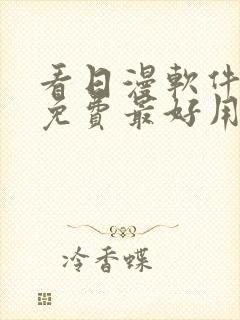 看日漫軟件
免費最好用
冷香蝶